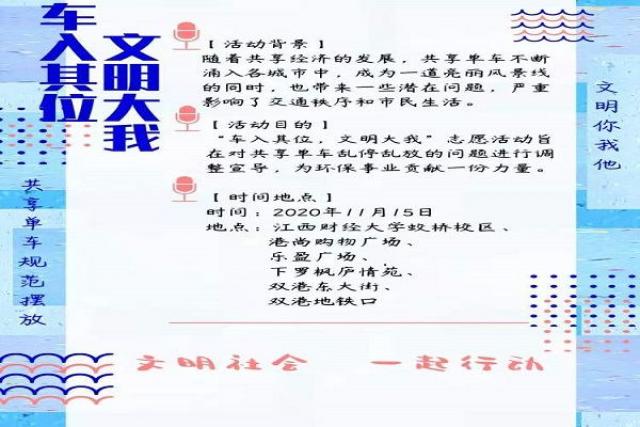 车入其位
文明大我
【活动背景】
随着共享经济的发展，共享单车不断
涌入各城市中，成为一道亮丽风景线
的同时，也带来一些潜在问题，严重
影响了交通秩序和市民生活。
【活动目的】
“车入其位，文明大我”志愿活动旨
在对共享单车乱停乱放的问题进行调
整宣导，为环保事业贡献一份力量。
【时间地点】
时间：2020年11月15日
地点：江西财经大学蛟桥校区、
港尚购物广场、
乐盈广场、
下罗枫庐情苑、
双港东大街、
双港地铁口
文明你我他
共享单车规范摆放
文明社会 一起行动